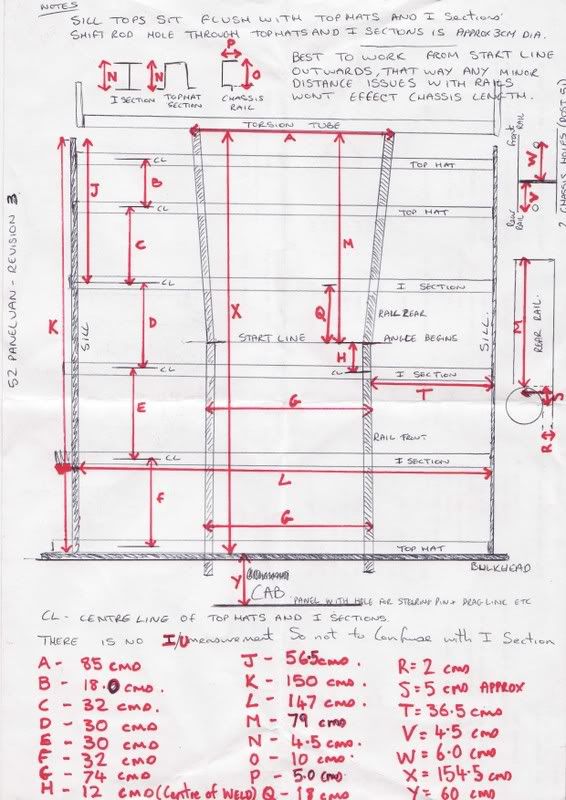 NOTES
SILL TOPS SIT FLUSH WITH TOPMATS AND I SECTIONS'
SHIFT ROD HOLE THROUGH TOPMATS AND I SECTIONS IS APPROX 3CM DIA.
BEST TO WORK FROM START LINE
OUTWARDS, THAT WAY ANY MINOR
DISTANCE ISSUES WITH RAILS
WONT EFFECT CHASSIS LENGTH.
N
I SECTION
N
TOPHAT
SECTION
P
O
CHASSIS
RAIL
TORSION TUBE
A
CL
TOP HAT
B
J
CL
TOP HAT
C
M
CL
I SECTION
K
SILL
D
X
Q
RAIL REAR
START LINE
ANGLE BEGINS
SILL
H
CL
CL
I SECTION
T
E
G
RAIL FRONT
CL
I SECTION
L
F
G
TOP HAT
BULKHEAD
Y
CAB
PANEL WITH HOLE FOR STEERING PIN + DRAGLINE ETC
52 PANELVAN - REVISION 3
2 CHASSIS HOLES (POST 51)
Front
RAIL
W
V
Rear
RAIL
M
REAR RAIL.
S
R
CL - CENTRE LINE OF TOP HATS AND I SECTIONS.
THERE IS NO I/U measurement So not to Confuse with I Section
A - 85 cms
B - 18.0 cms.
C - 32 cms.
D - 30 cms
E - 30 cms
F - 32 cms
G - 74 cms
H - 12 cms (Centre of WELD)
J - 56.5 cms.
K - 150 cms.
L - 147 cms.
M - 79 cms
N - 4.5 cms.
O - 10 cms.
P - 5.0 cms.
Q - 18 cms
R = 2 cms
S = 5 cms APPROX
T = 36.5 cms
V = 4.5 cms
W = 6.0 cms
X = 154.5 cms
Y = 60 cms